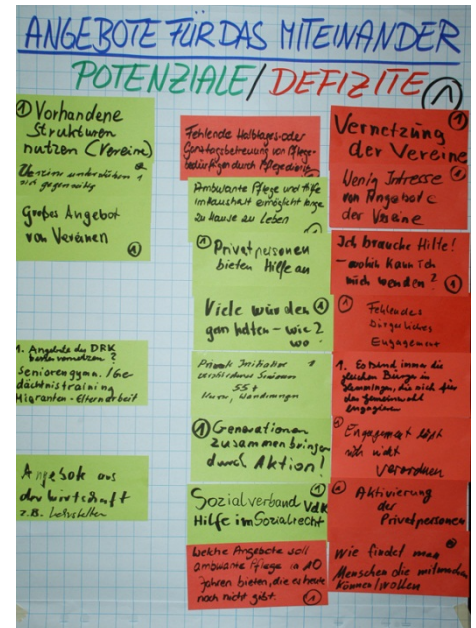 ANGEBOTE FÜR DAS MITEINANDER
POTENZIALE/DEFIZITE
1
1 Vorhandene
Strukturen
nutzen (Vereine)
Vereine unterstützen
sich gegenseitig
Großes Angebot
von Vereinen
1
1. Angebote des DRK
besser vernetzen?
Seniorengymn./Ge-
dächtnistraining
Migranten-Elternarbeit
Angebote aus
der Wirtschaft
z.B. Lehrstellen
Fehlende Halbtages- oder
Ganztagsbetreuung von Pflege-
bedürftigen durch Pflegedienste
Ambulante Pflege und Hilfe
im Haushalt ermöglicht lange
zu Hause zu Leben
1 Privatpersonen
bieten Hilfe an
Viele würden 1
gern helfen - wie?
wo?
Private Initiative
Senioren
55+
Wandrungen
1 Generationen
zusammen bringen
durch Aktion!
Sozialverband VdK 1
Hilfe im Sozialrecht
Welche Angebote soll
ambulante Pflege in 10
Jahren bieten, die es heute
noch nicht gibt. 1
1
Vernetzung
der Vereine
Wenig Intresse 1
von Angebot c
der Vereine
Ich brauche Hilfe!
- wohin kann ich
mich wenden? 1
1 Fehlendes
bürgerliches
Engagement
1. Es sind immer die
gleichen Bürger in
Gemmingen, die sich für
das Gemeinwohl
engagieren
Engagement läßt
sich nicht
verordnen
Aktivierung
der
Privatpersonen
Wie findet man
Menschen die mitmachen
können/wollen